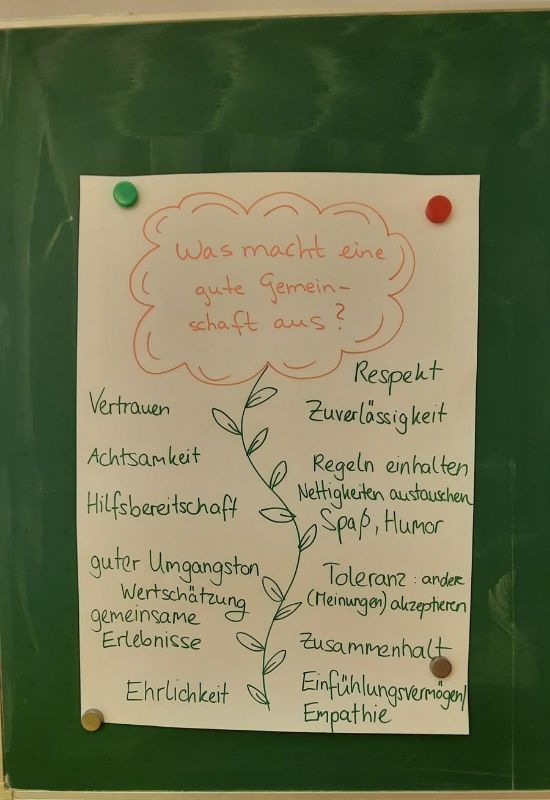 Was macht eine
gute Gemein-
schaft aus?
Vertrauen
Achtsamkeit
Hilfsbereitschaft
guter Umgangston
Wertschätzung
gemeinsame
Erlebnisse
Ehrlichkeit
Respekt
Zuverlässigkeit
Regeln einhalten
Nettigkeiten austauschen
Spaß, Humor
Toleranz: andere
(Meinungen) akzeptieren
Zusammenhalt
Einfühlungsvermögen/
Empathie